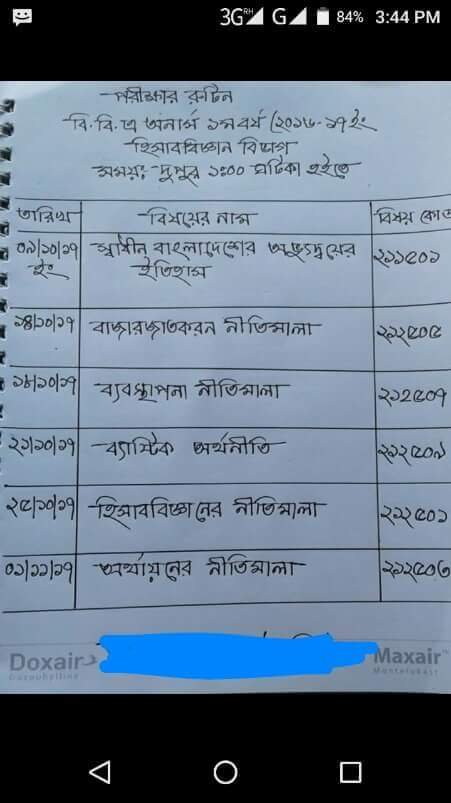 3G RH G 84% 3:44 PM
পরীক্ষার রুটিন
বি.বি.এ অনার্স ১ম বর্ষ (২০১৬-১৭ইং
হিসাববিজ্ঞান বিভাগ
সময়: দুপুর ১:০০ ঘটিকা হইতে
তারিখ বিষয়ের নাম বিষয় কোড
০৯/১০/১৭ ইং স্বাধীন বাংলাদেশের অভ্যুদয়ের ইতিহাস ২১১৫০১
১৪/১০/১৭ বাজারজাতকরন নীতিমালা ২১২৫০৫
১৮/১০/১৭ ব্যবস্থাপনা নীতিমালা ২১২৫০৭
২১/১০/১৭ ব্যাষ্টিক অর্থনীতি ২১২৫০৯
২৫/১০/১৭ হিসাববিজ্ঞানের নীতিমালা ২১২৫০১
০১/১১/১৭ অর্থায়নের নীতিমালা ২১২৫০৩
Doxair Maxair™
Doxophylline Montelukast